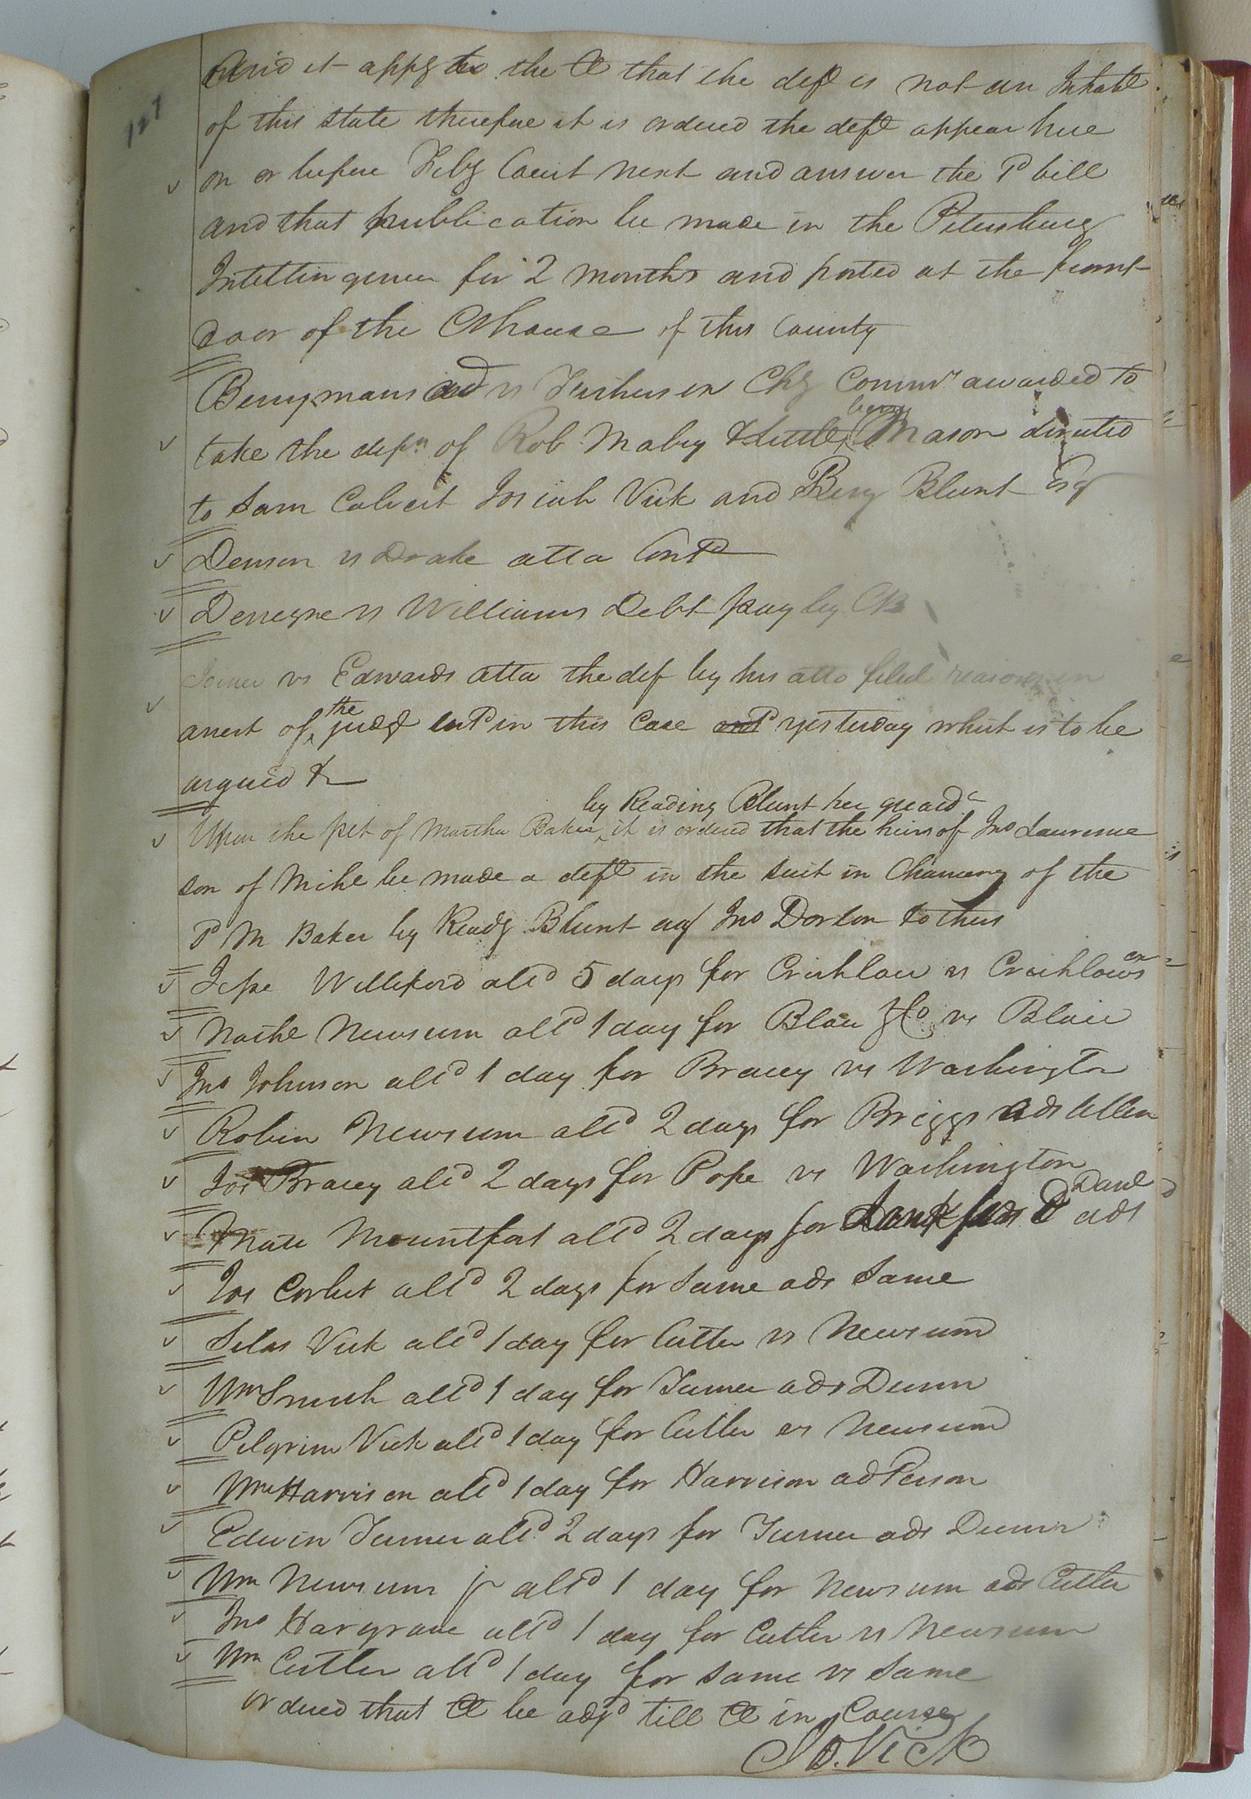 127
And it appg to the Ct that the deft is not an Inhabt
of this state therefore it is ordered the deft appear here
on or before Feby Court next and answer the Pd bill
and that publication be made in the Petersburg
Intelligencer for 2 months and posted at the front
door of the Cthouse of this County
Berrymans ad vs Chy Commn awarded to
take the depn of Rob Maby Little, berry Mason directed
to Sam Calvert Josiah Vick and Benj Blunt Esqr
Denson vs Drake atta Contd
Denegre vs Williams Debt pay by
Joiner vs Edwards atta the def by his atto filed reasons in
arrest of the judgt entd in this Case entd yesterday which is to be
argued &
by Reading Blunt her guard
Upon the pet of Martha Baker, it is ordered that the heirs of Jno Laurence
son of Mike be made a deft in the suit in Chancery of the
Pd M Baker by Readg Blunt agt Jno Dorlon & others
Jesse Williford alld 5 days for Crichlow vs Crichlows ex
Nathl Newsum alld 1 day for Blow & Co vs Blair
Jno Johnson alld 1 day for Bracey vs Washington
Robin Newsum alld 2 days for Briggs ads Allen
Jos Bracey alld 2 days for Pope vs Washington
Matt Mountfort alld 2 days for Danl ads
Jos Corbit alld 2 days for Same ads Same
Silas Vick alld 1 day for Cutler vs Newsum
Wm Smith alld 1 day for Turner ads Dunn
Pilgrim Vick alld 1 day for Cutler vs Newsum
Wm Harrison alld 1 day for Harrison ad Person
Edwin Turner alld 2 days for Turner ads Dunn
Wm Newsum jr alld 1 day for Newsum ads Cutler
Jno Hargrave alld 1 day for Cutler vs Newsum
Wm Cutler alld 1 day for same vs same
Ordered that Ct be adjd till Ct in Course
Jo. Vick